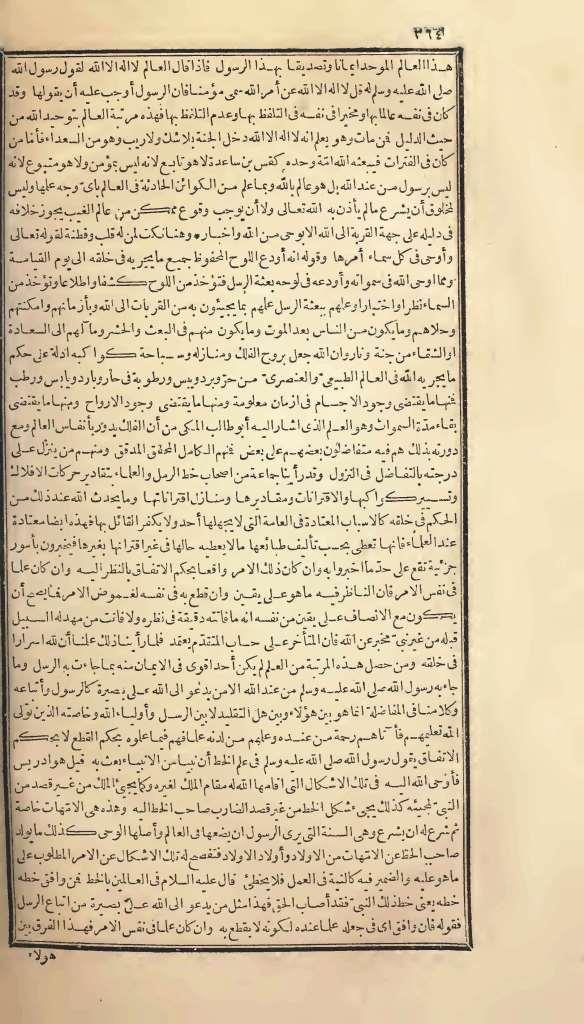 ٣٦٤
هذا العالم الموحد ايمانا وتصديقا بهذا الرسول فاذا قال العالم لا اله الا الله لقول رسول الله
صلى الله عليه وسلم له قل لا اله الا الله عن أمر الله سمى مؤمنا فان الرسول أوجب عليه أن يقولها وقد
كان في نفسه عالما بها ومخيرا في نفسه في التلفظ بها وعدم التلفظ بها فهذه مرتبة العالم بتوحيد الله من
حيث الدليل فمن مات وهو يعلم انه لا اله الا الله دخل الجنة بلا شك ولا ريب وهو من السعداء فأما من
كان في الفترات فيبعثه الله امة وحده كقس بن ساعدة لا هو تابع لانه ليس بمؤمن ولا هو متبوع لانه
ليس برسول من عند الله بل هو عالم بالله وبما علم من الكوائن الحادثة في العالم بأى وجه علمها وليس
لمخلوق أن يشرع ما لم يأذن به الله تعالى ولا أن يوجب وقوع ممكن من عالم الغيب يجوز خلافه
في دليله على جهة القربة الى الله الا بوحى من الله واخبار وهنا نكت لمن له قلب وفطنة لقوله تعالى
وأوحى في كل سماء أمرها وقوله انه أودع اللوح المحفوظ جميع ما يجريه في خلقه الى يوم القيامة
ومما أوحى الله في سمواته وأودعه في لوحه بعثة الرسل فتؤخذ من اللوح كشفا واطلاعا وتؤخذ من
السماء نظرا واختبارا وعلمهم ببعثة الرسل علمهم بما يجيئون به من القربات الى الله وبأزمانهم وامكنتهم
وحلاهم وما يكون من الناس بعد الموت وما يكون منهم في البعث والحشر ومآلهم الى السعادة
او الشقاء من جنة ونار وان الله جعل بروج الفلك ومنازله وسباحة كواكبه ادلة على حكم
ما يجريه الله في العالم الطبيعى والعنصرى من حر وبرد ويبس ورطوبة في حار وبارد ويابس ورطب
فمنها ما يقتضى وجود الاجسام في ازمان معلومة ومنها ما يقتضى وجود الارواح ومنها ما يقتضى
بقاء مدة السموات وهو العلم الذى اشار اليه أبو طالب المكى من أن الفلك يدور بأنفاس العالم ومع
دورته بذلك هم فيه متفاضلون بعضهم على بعض فمنهم الكامل المحقق المدقق ومنهم من ينزل على
درجته بالتفاضل في النزول وقد رأينا جماعة من اصحاب خط الرمل والعلماء بتقادير حركات الافلاك
وتسيير كواكبها والاقترانات ومقاديرها ومنازل اقتراناتها وما يحدث الله عند ذلك من
الحكم في خلقه كالاسباب المعتادة في العامة التى لا يجهلها أحد ولا يكفر القائل بها فهذه ايضا معتادة
عند العلماء فانها تعطى بحسب تأليف طبائعها ما لا يعطيه حالها في غير اقترانها بغيرها فيخبرون بأمور
جزئية تقع على حد ما اخبروا به وان كان ذلك الامر واقعا بحكم الاتفاق بالنظر اليه وان كان علما
في نفس الامر فان الناظر فيه ما هو على يقين وان قطع به في نفسه لغموض الامر فما يصح أن
يكون مع الانصاف على يقين من نفسه انه ما فاتته دقيقة في نظره ولا فاتت من مهد له السبيل
قبله من غير نبى مخبر عن الله فان المتأخر على حساب المتقدم يعتمد فلما رأينا ذلك علمنا أن لله اسرارا
في خلقه ومن حصل هذه المرتبة من العلم لم يكن أحد اقوى في الايمان منه بما جاءت به الرسل وما
جاء به رسول الله صلى الله عليه وسلم من عند الله الا من يدعو الى الله على بصيرة كالرسول وأتباعه
وكلامنا في المفاضلة انما هو بين هؤلاء وبين هل التقليد لا بين الرسل وأولياء الله وخاصته الذين تولى
الله تعليمهم فآتاهم رحمة من عنده وعلمهم من لدنه علما فهم فيما علوه بحكم القطع لا بحكم
الاتفاق يقول رسول الله صلى الله عليه وسلم في علم الخط ان نبيا من الانبياء بعث به قيل هو ادريس
فأوحى الله اليه في تلك الاشكال التى اقامها الله له مقام الملك لغيره وكما يجىء الملك من غير قصد من
النبى لمجيئه كذلك يجىء شكل الخط من غير قصد الضارب صاحب الخط اليه وهذه هى الامهات خاصة
ثم شرع له ان يشرع وهى السنة التى يرى الرسول ان يضعها في العالم وأصلها الوحى كذلك ما يولد
صاحب الخط عن الامهات من الاولاد وأولاد الاولاد فتفصح له تلك الاشكال عن الامر المطلوب على
ما هو عليه والضمير فيه كالنية في العمل فلا يخطئ قال عليه السلام في العالمين بالخط فمن وافق خطه
خطه يعنى خط ذلك النبى فقد أصاب الحق فهذا مثل من يدعو الى الله على بصيرة من اتباع الرسل
فقوله فان وافق اى في جعله علما عنده لكونه لا يقطع به وان كان علما في نفس الامر فهذا الفرق بين
هولاء